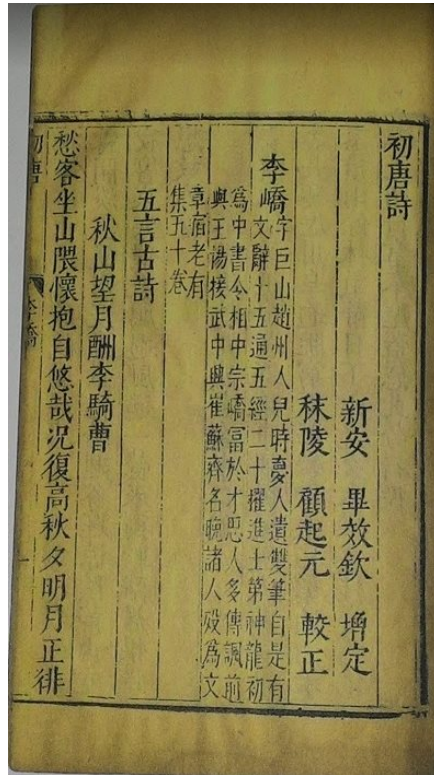 初唐詩
新安 畢效欽 增定
秣陵 顧起元 較正
李嶠字巨山趙州人兒時夢人遺雙筆自是有
文辭十五通五經二十擢進士第神龍初
為中書令相中宗嶠富於才思人多傳諷前
與王楊接武中與崔蘇齊名晚諸人歿為文
章宿老有
集五十卷
五言古詩
秋山望月酬李騎曹
愁客坐山隈懷抱自悠哉況復高秋夕明月正徘
初唐
李嶠